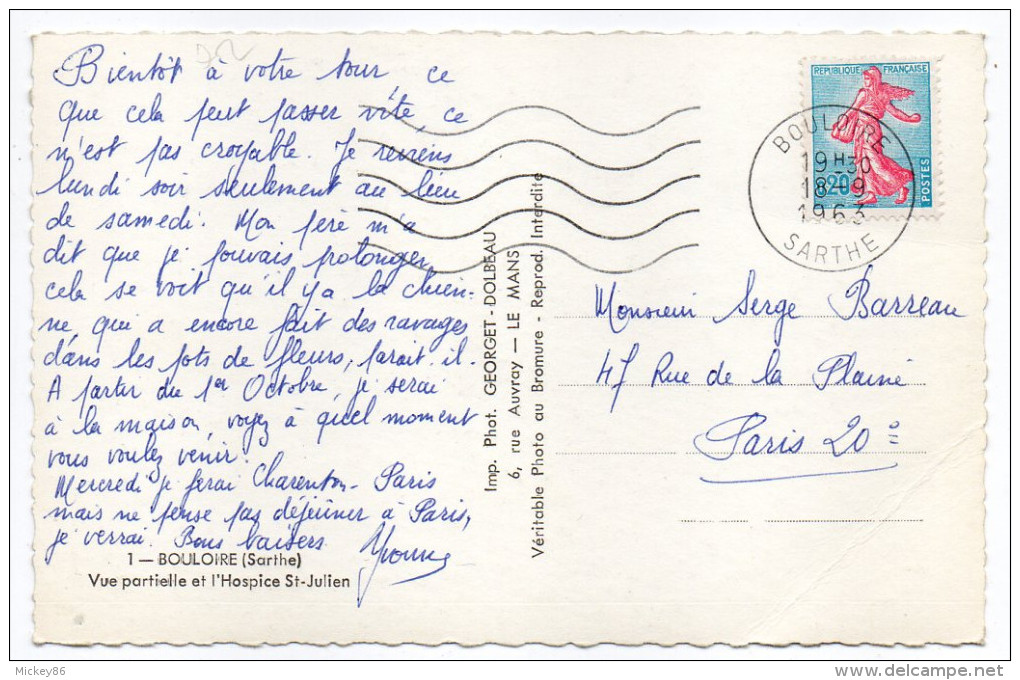 Bientôt à votre tour, ce
que cela peut passer vite, ce
n'est pas croyable. Je reviens
lundi soir seulement au lieu
de samedi. Mon père m'a
dit que je pouvais prolonger,
cela se voit qu'il y a la chien-
ne, qui a encore fait des ravages
dans les pots de fleurs, parait-il.
A partir du 1er Octobre, je serai
à la maison, voyez à quel moment
vous voulez venir.
Mercredi je ferai Charenton - Paris
mais ne pense pas déjeuner à Paris,
je verrai. Bons baisers Yvonne
1 — BOULOIRE (Sarthe)
Vue partielle et l'Hospice St-Julien
Imp. Phot. GEORGET - DOLBEAU
6, rue Auvray — LE MANS
Véritable Photo au Bromure - Reprod. Interdite
REPUBLIQUE FRANÇAISE
0,20
POSTES
BOULOIRE
19H30
18-9
1963
SARTHE
Monsieur Serge Barreau
47 Rue de la Plaine
Paris 20e
Mickey86